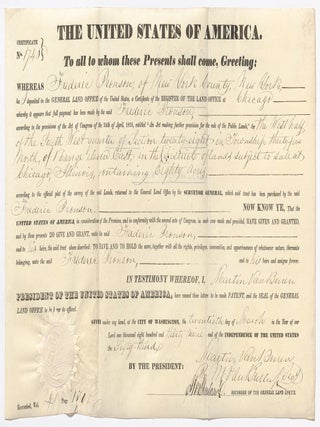 THE UNITED STATES OF AMERICA.
CERTIFICATE
No.
To all to whom these Presents shall come, Greeting:
WHEREAS Frederic Bronson, of New York County, New York
deposited in the GENERAL LAND OFFICE of the United States, a Certificate of the REGISTER OF THE LAND OFFICE at Chicago
whereby it appears that full payment has been made by the said Frederic Bronson
according to the provisions of the Act of Congress of the 24th of April, 1820, entitled "An Act making further provision for the sale of the Public Lands," for the West half
of the South West quarter of Section twenty eight in Township thirty six
North, of Range eleven East, in the District of lands subject to sale at
Chicago, Illinois, containing Eighty Acres
according to the official plat of the survey of the said Lands, returned to the General Land Office by the SURVEYOR GENERAL, which said tract has been purchased by the said
Frederic Bronson NOW KNOW YE, That the
UNITED STATES OF AMERICA, in consideration of the Premises, and in conformity with the several acts of Congress, in such case made and provided, HAVE GIVEN AND GRANTED,
and by these presents DO GIVE AND GRANT, unto the said Frederic Bronson,
and to his heirs, the said tract above described: TO HAVE AND TO HOLD the same, together with all the rights, privileges, immunities, and appurtenances of whatsoever nature, thereunto
belonging, unto the said Frederic Bronson, and to his heirs and assigns forever.
IN TESTIMONY WHEREOF, I, Martin Van Buren
PRESIDENT OF THE UNITED STATES OF AMERICA, have caused these Letters to be made PATENT, and the SEAL of the GENERAL
LAND OFFICE to be hereunto affixed.
GIVEN under my hand, at the CITY OF WASHINGTON, the twentieth day of March in the Year of our
Lord one thousand eight hundred and thirty nine and of the INDEPENDENCE OF THE UNITED STATES
the Sixty third
BY THE PRESIDENT: Martin Van Buren
By M Van Buren Sec'y
RECORDER OF THE GENERAL LAND OFFICE.
Recorded, Vol. Page